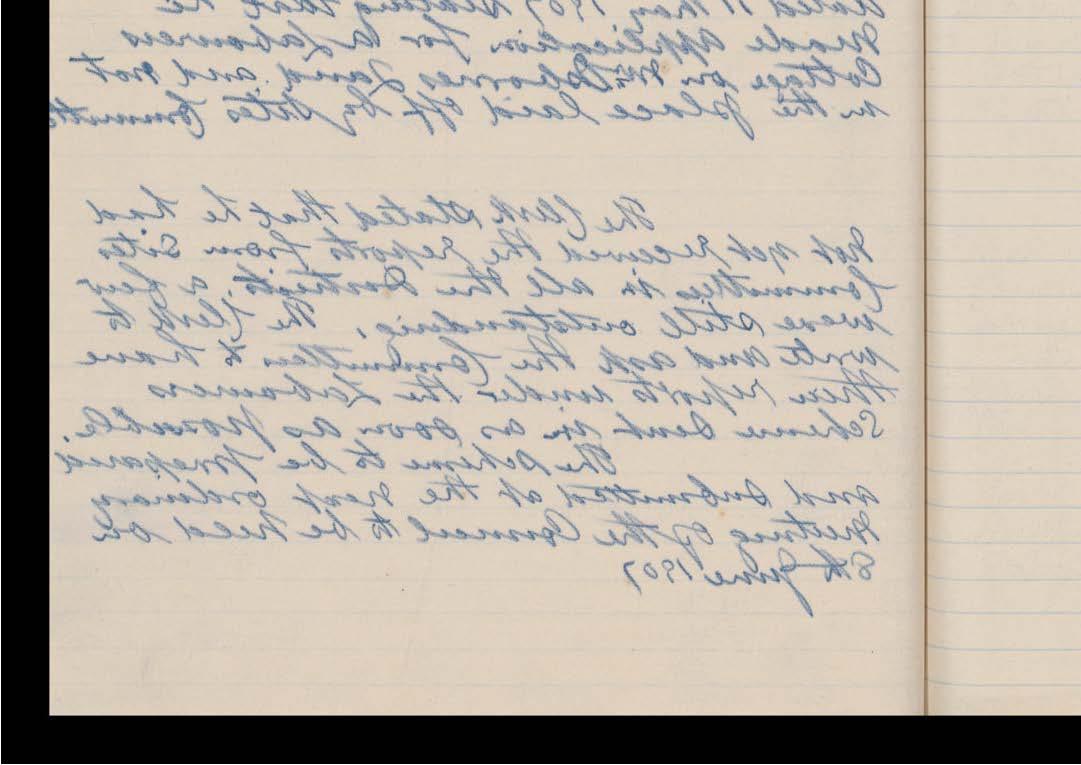 dated 11 May 1907 stating that he
made application for a Labourers
Cottage on Mrs Osbornes Land and not
in the place laid off by Sites Committee
The Clerk stated that he had
not yet received the reports from Sites
Committees in all the Districts, a few
were still outstanding. The Clerk to
write and ask the Committees to have
their reports under the Labourers
Scheme sent in as soon as possible.
The scheme to be prepared
and submitted at the next ordinary
Meeting of the Council to be held on
8th June 1907